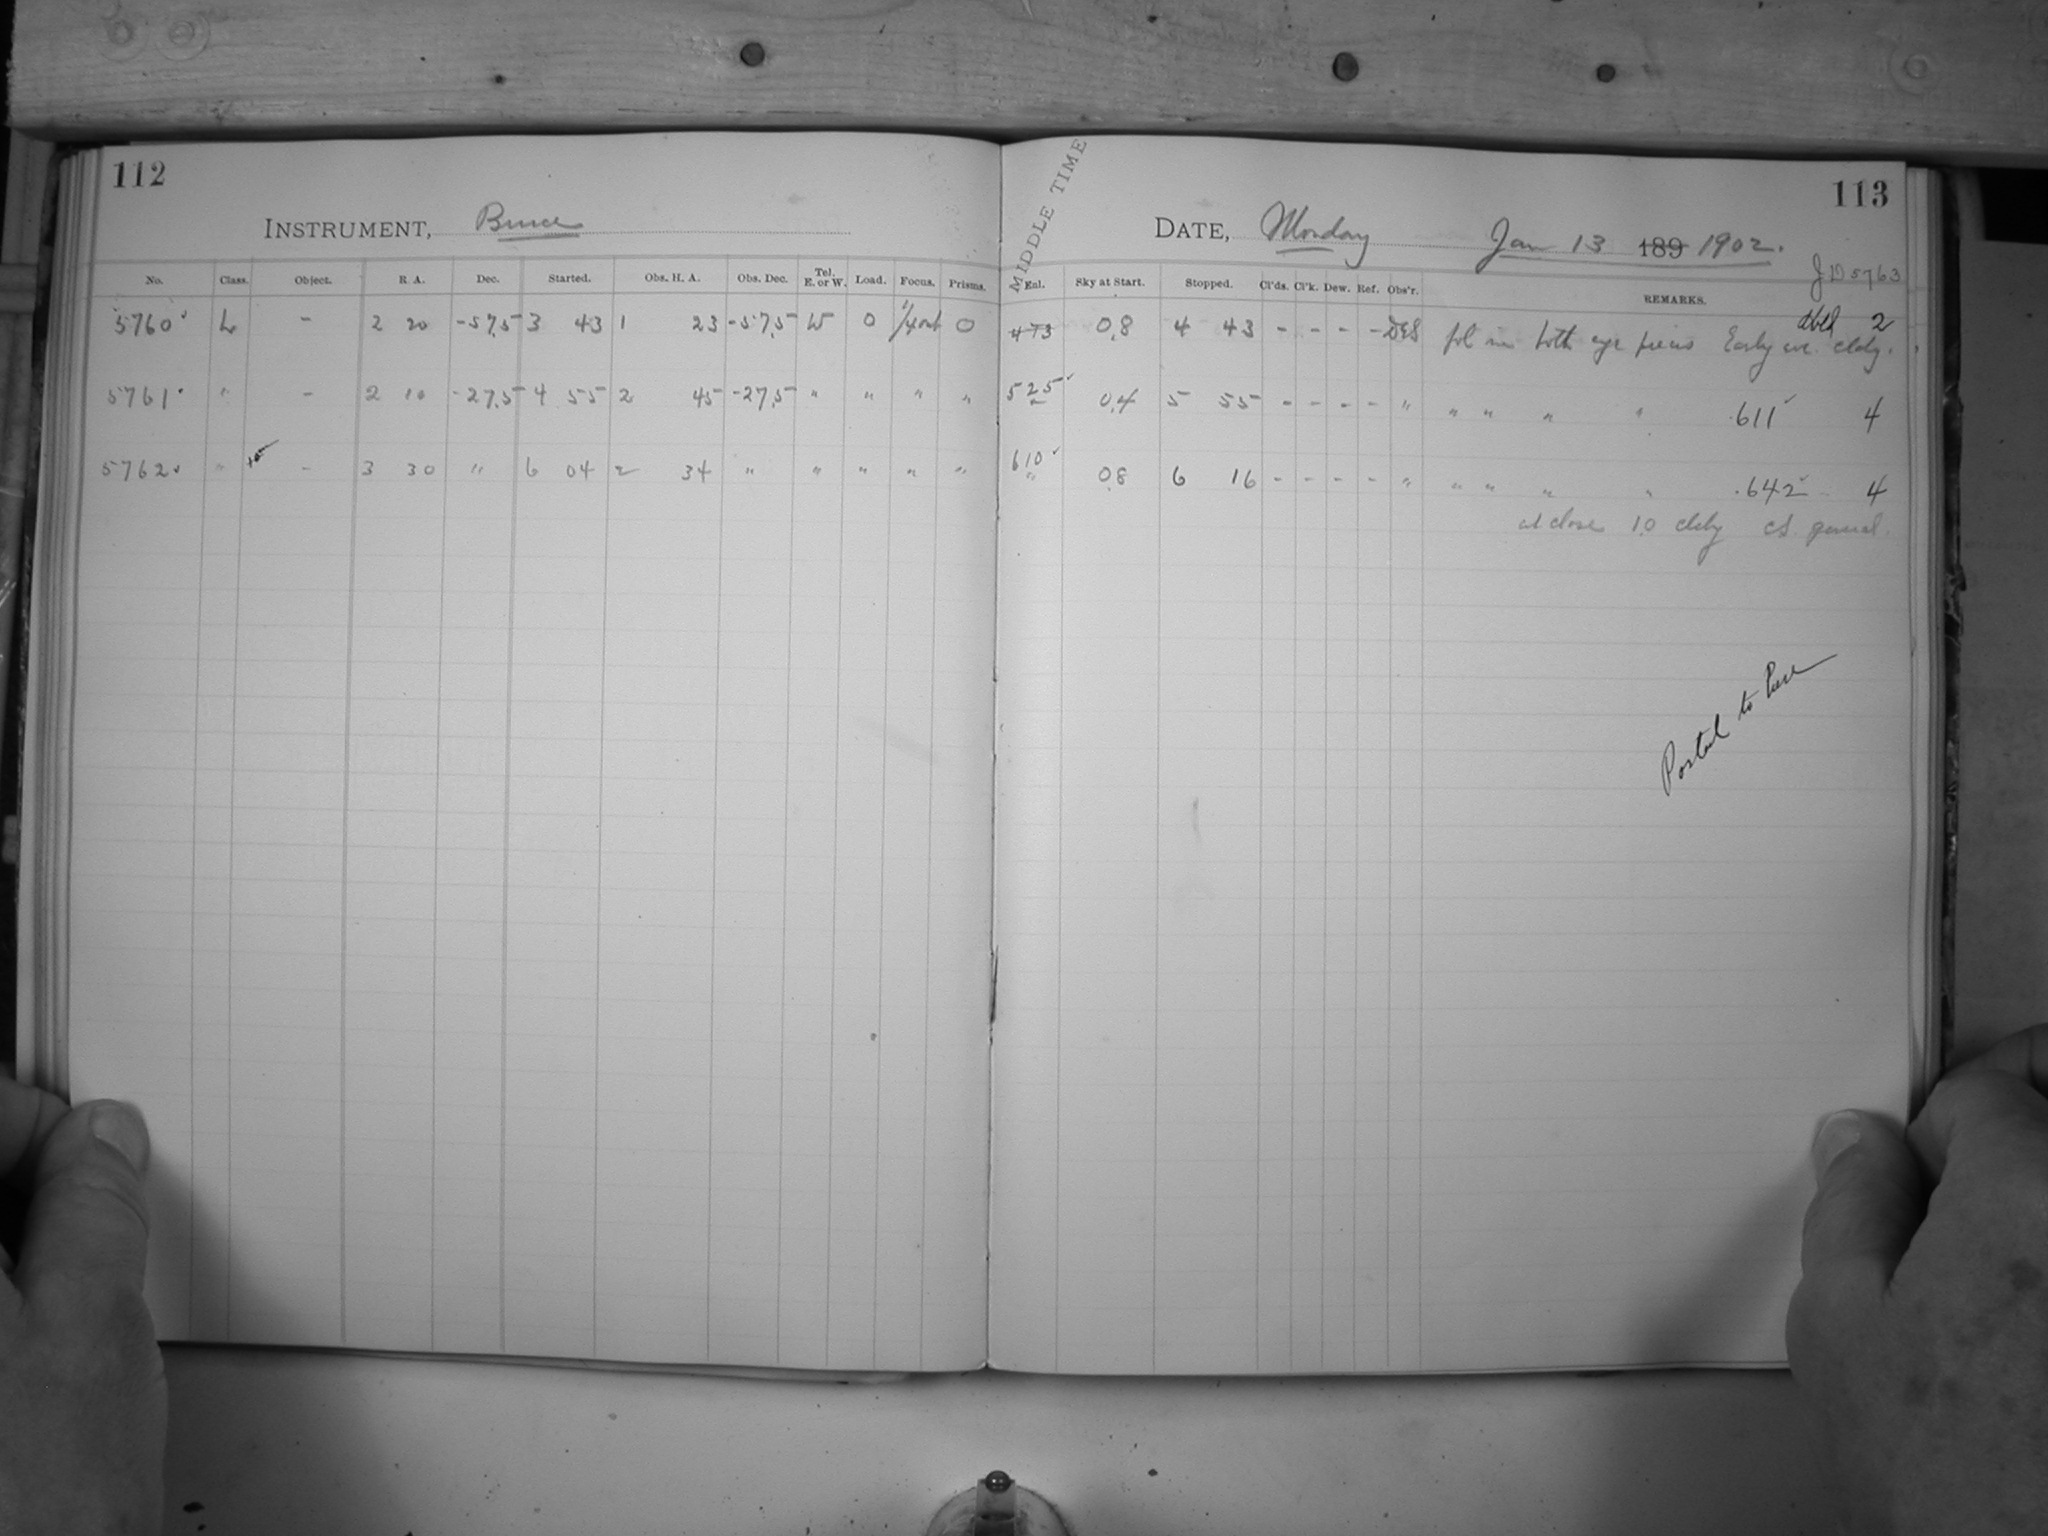 112
INSTRUMENT, Bruce
No. Class. Object. R. A. Dec. Started. Obs. H. A. Obs. Dec. Tel. E. or W. Load. Focus. Prisms.
5760 L - 2 20 -57.5 3 43 1 23 -57.5 W 0 1/4 out 0
5761 " - 2 10 -27.5 4 55 2 45 -27.5 " " " "
5762 " - 3 30 " 6 04 2 34 " " " " "
113
MIDDLE TIME
DATE, Monday Jan 13 189 1902.
JD 5763
Enl. Sky at Start. Stopped. Cl'ds. Cl'k. Dew. Ref. Obs'r. REMARKS.
473 0.8 4 43 - - - - DES fol in both eye pieces Early eve. cldy. 2
525 0.4 5 55 - - - - " " " " " .611 4
610 " 0.8 6 16 - - - - " " " " " .642 4
at close 1.0 cldy cS. general.
Posted to here